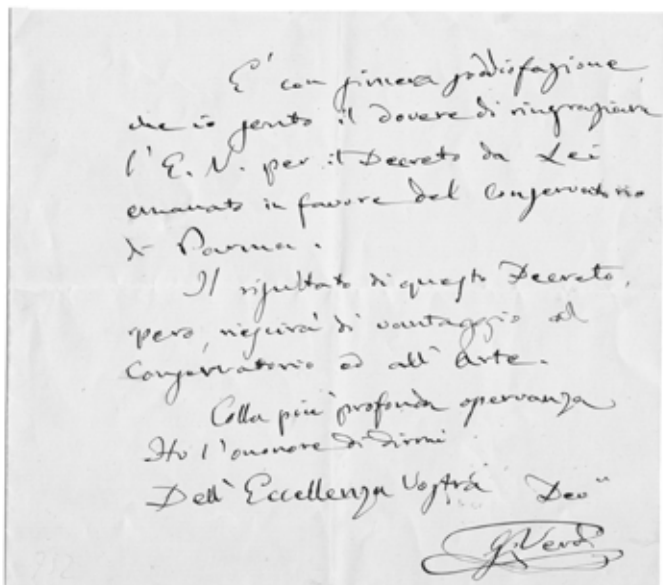 E' con sincera soddisfazione
che io sento il dovere di ringraziare
l'E. V. per il Decreto da Lei
emanato in favore del Conservatorio
di Parma.
Il risultato di questo Decreto,
spero, riescirà di vantaggio al
Conservatorio ed all'Arte.
Colla più profonda osservanza
Ho l'onore di dirmi
Dell'Eccellenza Vostra Dev"
G. Verdi